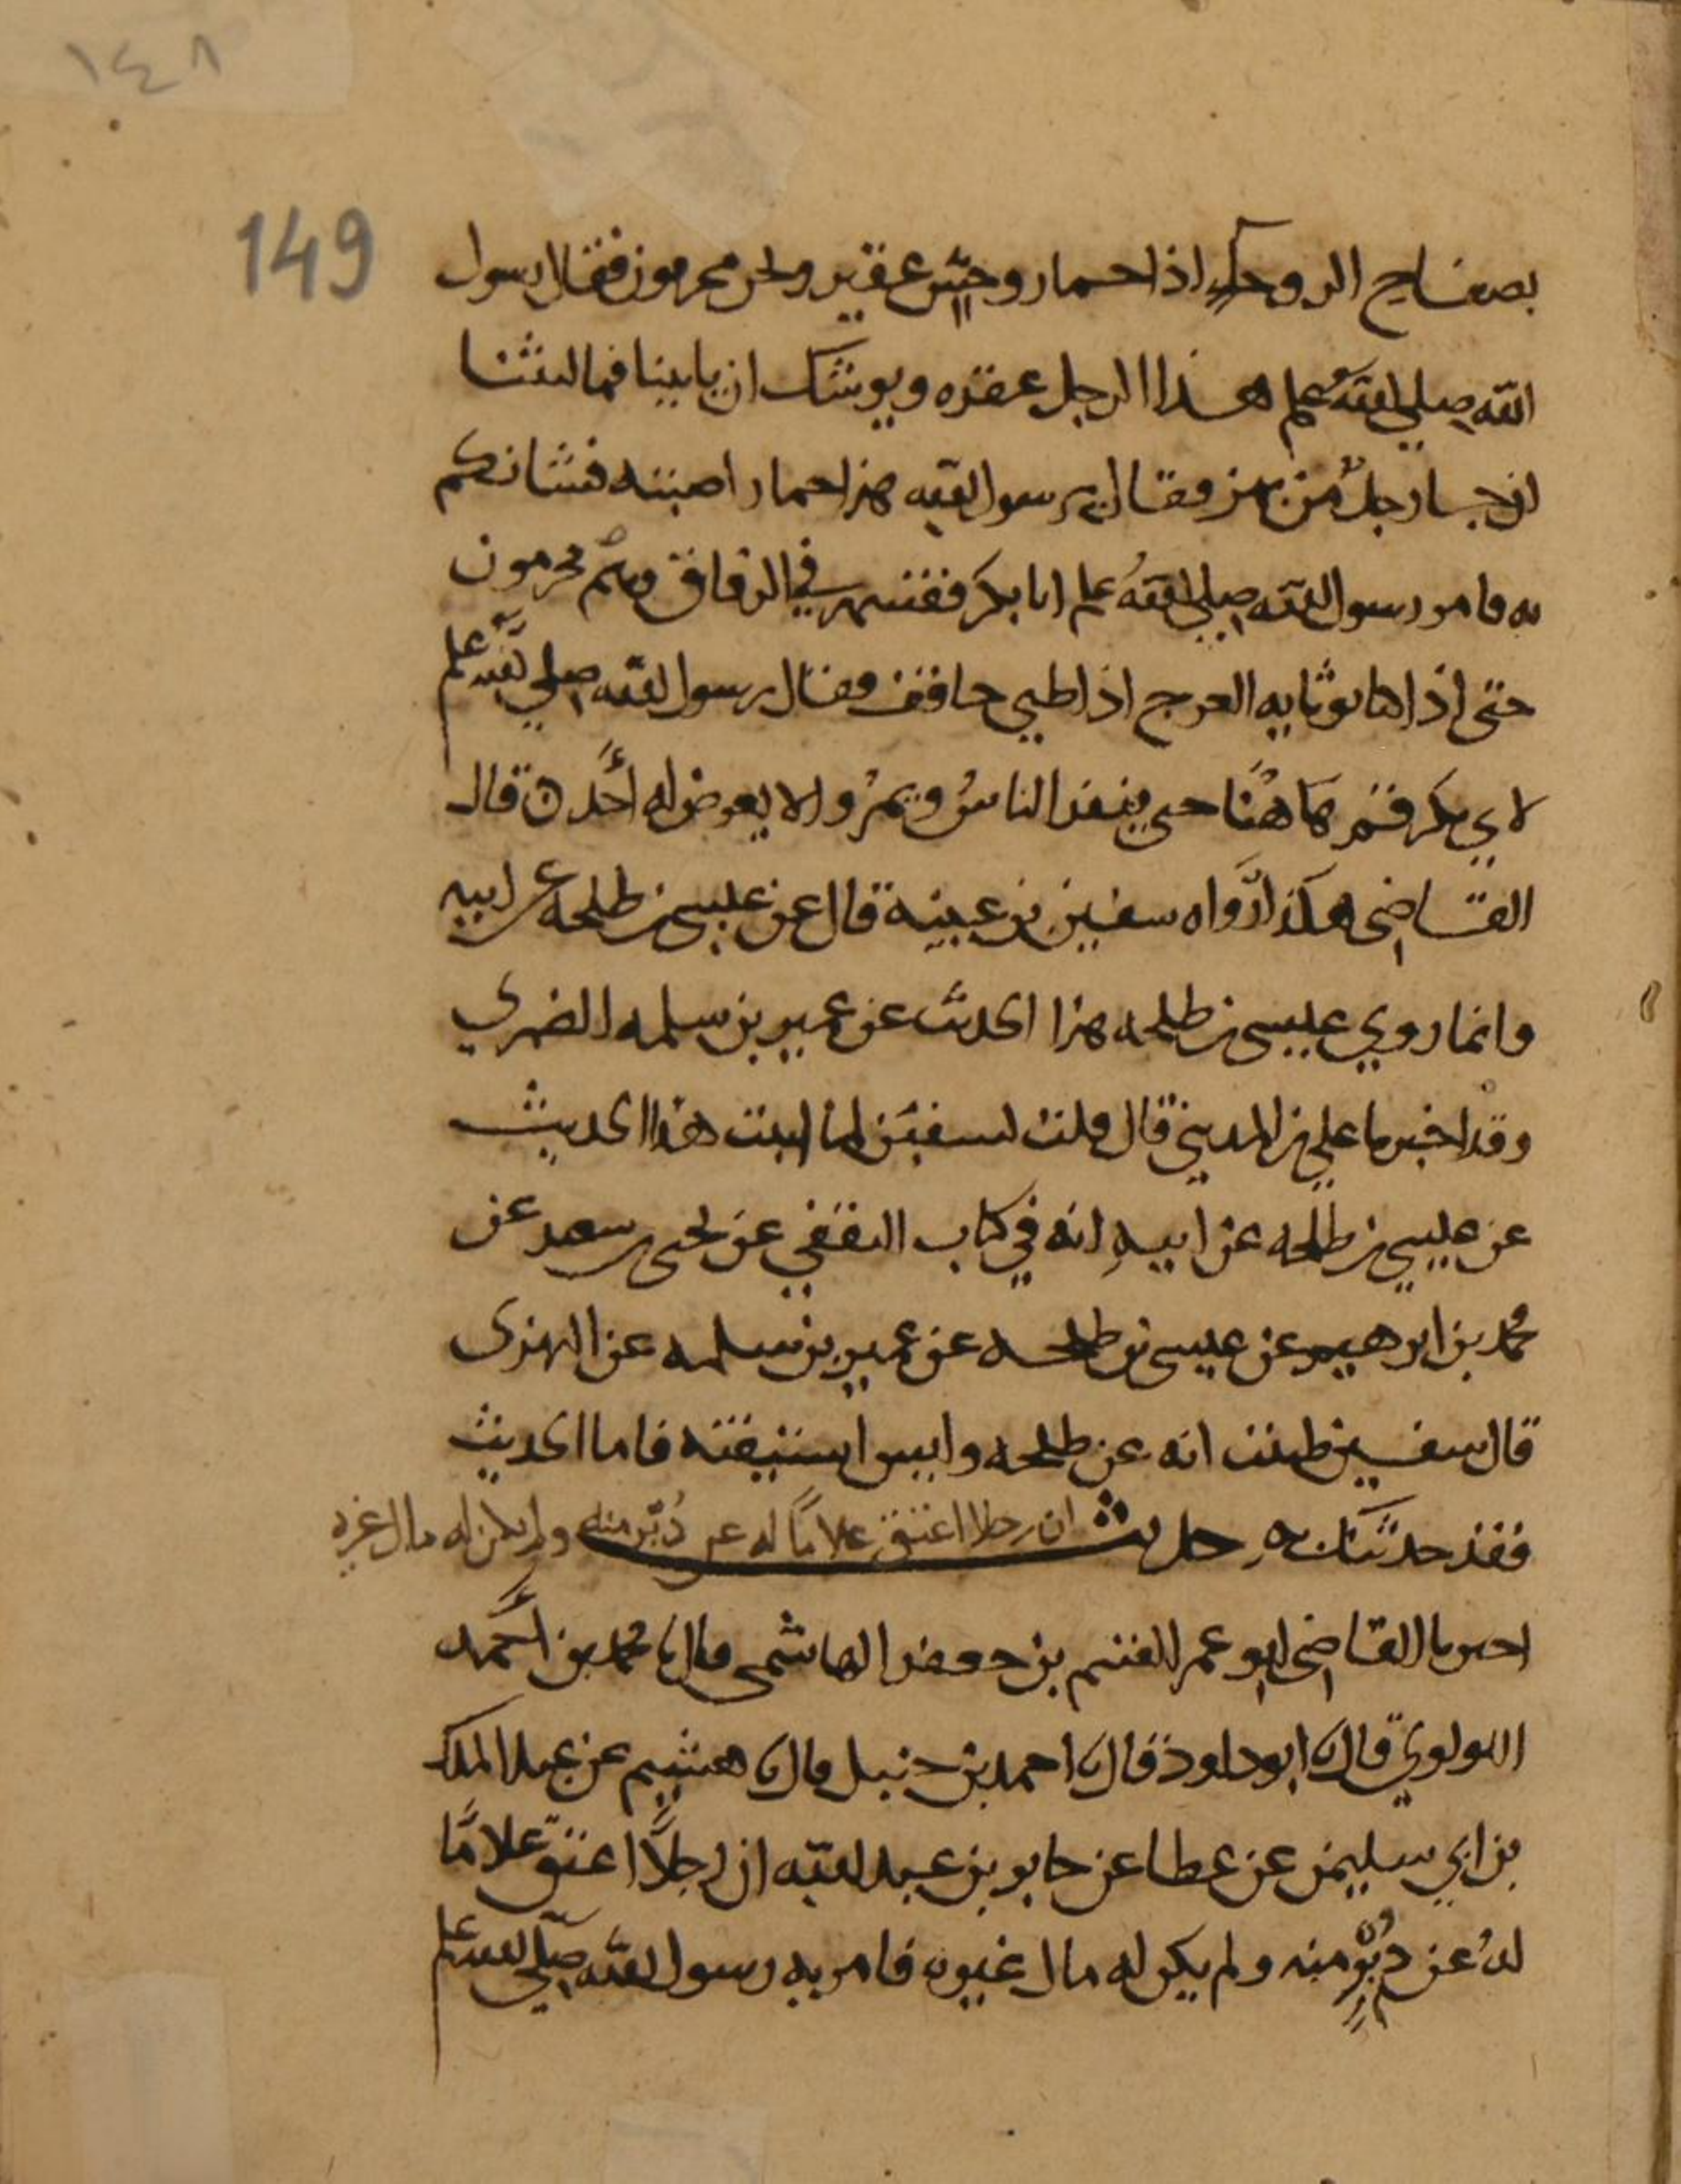 ١٤٨
149
بصفاح الروحا اذا حمار وحش عقير ونحن محرمون فقال رسول
الله صلى الله علم هذا الرجل عقره ويوشك ان ياتينا فما لبثنا
ان جا رجل من بهز فقال يرسول الله هذا حمار اصبته فشانكم
به فامر رسول الله صلى الله علم ابا بكر فقسمه في الرفاق وهم محرمون
حتى اذا كانوا باثايه العرج اذا ظبي حاقف فقال رسول الله صلى الله علم
لابي بكر قم هاهنا حتى ينفذ الناس ويمروا لا يعرض له احد ه قال
القاضى هكذا رواه سفين بن عيينه قال عن عيسى بن طلحه عن ابيه
وانما روي عيسى بن طلحه هذا الحديث عن عمير بن سلمه الضمري
وقد اخبرنا علي بن المديني قال قلت لسفين لما اثبت هذا الحديث
عن عيسى بن طلحه عن ابيه انه في كتاب الثقفي عن يحيى بن سعيد عن
محمد بن ابرهيم عن عيسى بن طلحه عن عمير بن سلمه عن البهزى
قال سفين ظننت انه عن طلحه وليس استيقنه فاما الحديث
فقد حدثتك به حديث ان رجلا اعتق غلاما له عن دبر منه ولم يكن له مال غيره
اخبرنا القاضى ابو عمر القسم بن جعفر الهاشمى قال نا محمد بن احمد
اللولوي قال نا ابو داود قال نا احمد بن حنبل قال نا هشيم عن عبد الملك
بن ابي سليمن عن عطا عن جابر بن عبد الله ان رجلا اعتق غلاما
له عن دبر منه ولم يكن له مال غيره فامر به رسول الله صلى الله علم